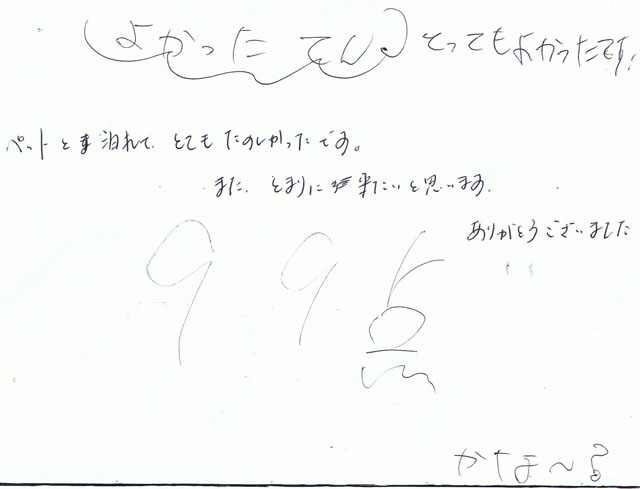 よかったてん。とってもよかったです!
ペットと泊れて、とてもたのしかったです。
また、とまりに来たいと思います。
ありがとうございました
99点
かなまる